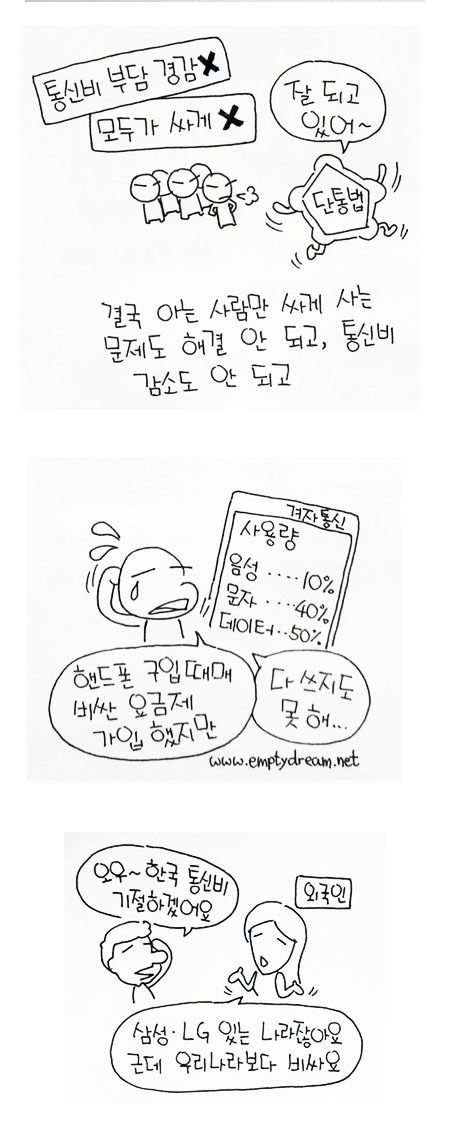 통신비 부담 경감 X
모두가 싸게 X
잘 되고
있어~
단통법
결국 아는 사람만 싸게 사는
문제도 해결 안 되고, 통신비
감소도 안 되고
겨자통신
사용량
음성 ···· 10%
문자 ···· 40%
데이터 ·· 50%
핸드폰 구입때매
비싼 요금제
가입 했지만
다 쓰지도
못 해...
www.emptydream.net
오우~ 한국 통신비
기절하겠어요
외국인
삼성·LG 있는 나라잖아요
근데 우리나라보다 비싸요